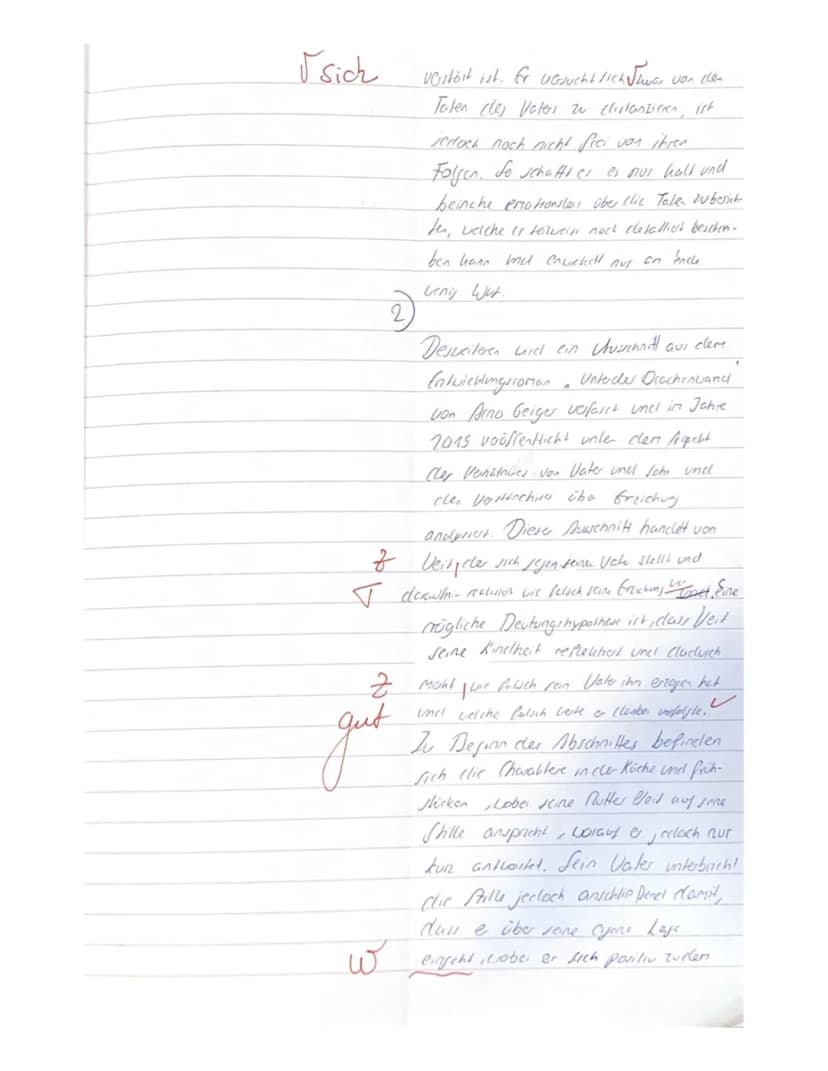 √ sich
verstört ist. Er versucht sich √ zwar von den
Taten des Vaters zu distanzieren, ist
jedoch noch nicht frei von ihren
Folgen. So schafft er es nur kalt und
beinahe emotionslos über die Taten zu berich-
ten, welche er teilweise noch detailliert beschrei-
ben kann und entwickelt nur am Ende
wenig Wut.
2)
Desweiteren wird ein Ausschnitt aus dem
Entwicklungsroman „Unter der Drachenwand"
von Arno Geiger verfasst und im Jahre
2015 veröffentlicht unter dem Aspekt
des Verhältnisses von Vater und Sohn und
des Verständnisses über Erziehung
analysiert. Dieser Ausschnitt handelt von
Z Veit, der sich gegen seinen Vater stellt und
T daraufhin realisiert wie falsch seine Erziehung Eine
mögliche Deutungshypothese ist, dass Veit
seine Kindheit reflektiert und dadurch
Z merkt, wie falsch sein Vater ihn erzogen hat
gut und welche falsch Werte er darüber verfolgte. ✓
Zu Beginn des Abschnittes befinden
sich die Charaktere in der Küche und früh-
stücken, wobei seine Mutter Veit auf seine
Stille anspricht, worauf er jedoch nur
kurz antwortet. Sein Vater unterbricht
die Stille jedoch anschließend damit,
dass er über seine eigene Lage
W eingeht, wobei er sich positiv zu den